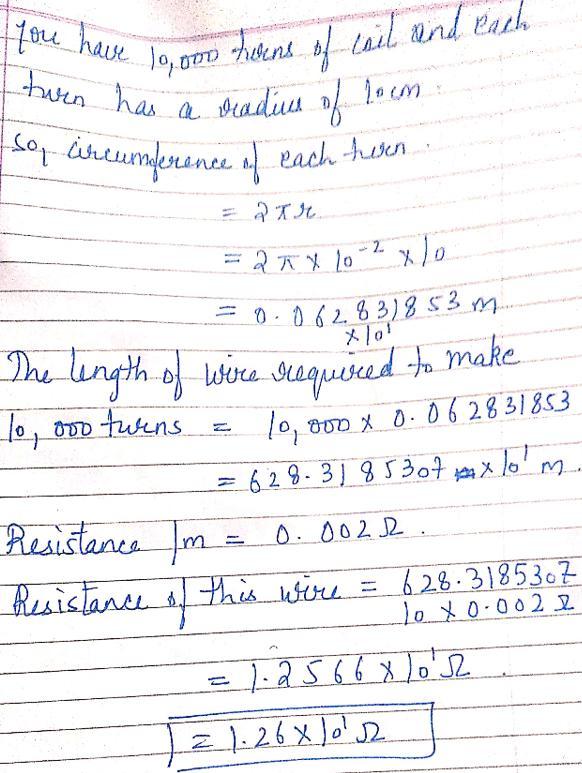 You have 10,000 turns of coil and each
turn has a radius of 10cm.
So, circumference of each turn.
= 2πr
= 2π x 10⁻² x 10
= 0.062831853 m
x 10¹
The length of wire required to make
10,000 turns = 10,000 x 0.062831853
= 628.3185307 x 10¹ m.
Resistance /m = 0.002 Ω.
Resistance of this wire = 628.3185307
10 x 0.002 Ω
= 1.2566 x 10¹ Ω.
= 1.26 x 10¹ Ω